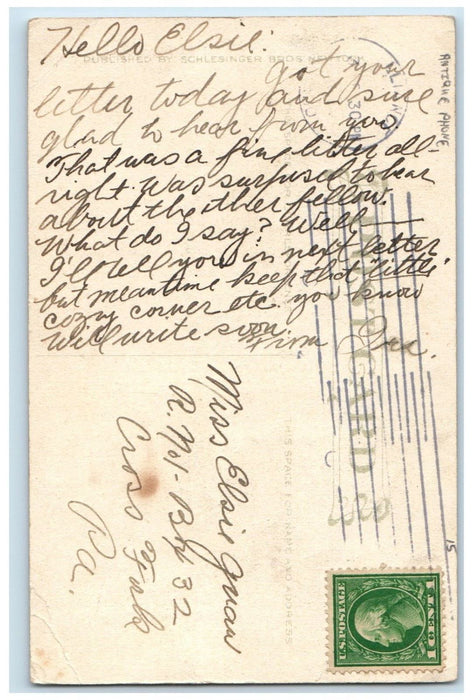 Hello Elsie:
PUBLISHED BY SCHLESINGER BROS NEW YORK
Got your
letter today and sure
glad to hear from you
That was a fine letter all-
right. Was surprised to hear
about the other fellow.
What do I say? Well
I'll tell you in next letter
but meantime keep that little
cozy corner etc. you know
Will write soon.
From
ANTIQUE PHONE
Miss Elsie
R. No 1 - Box 32
Cross Fork
Pa.
THIS SPACE FOR NAME AND ADDRESS
POST CARD
15
U.S. POSTAGE
1 CENT 1